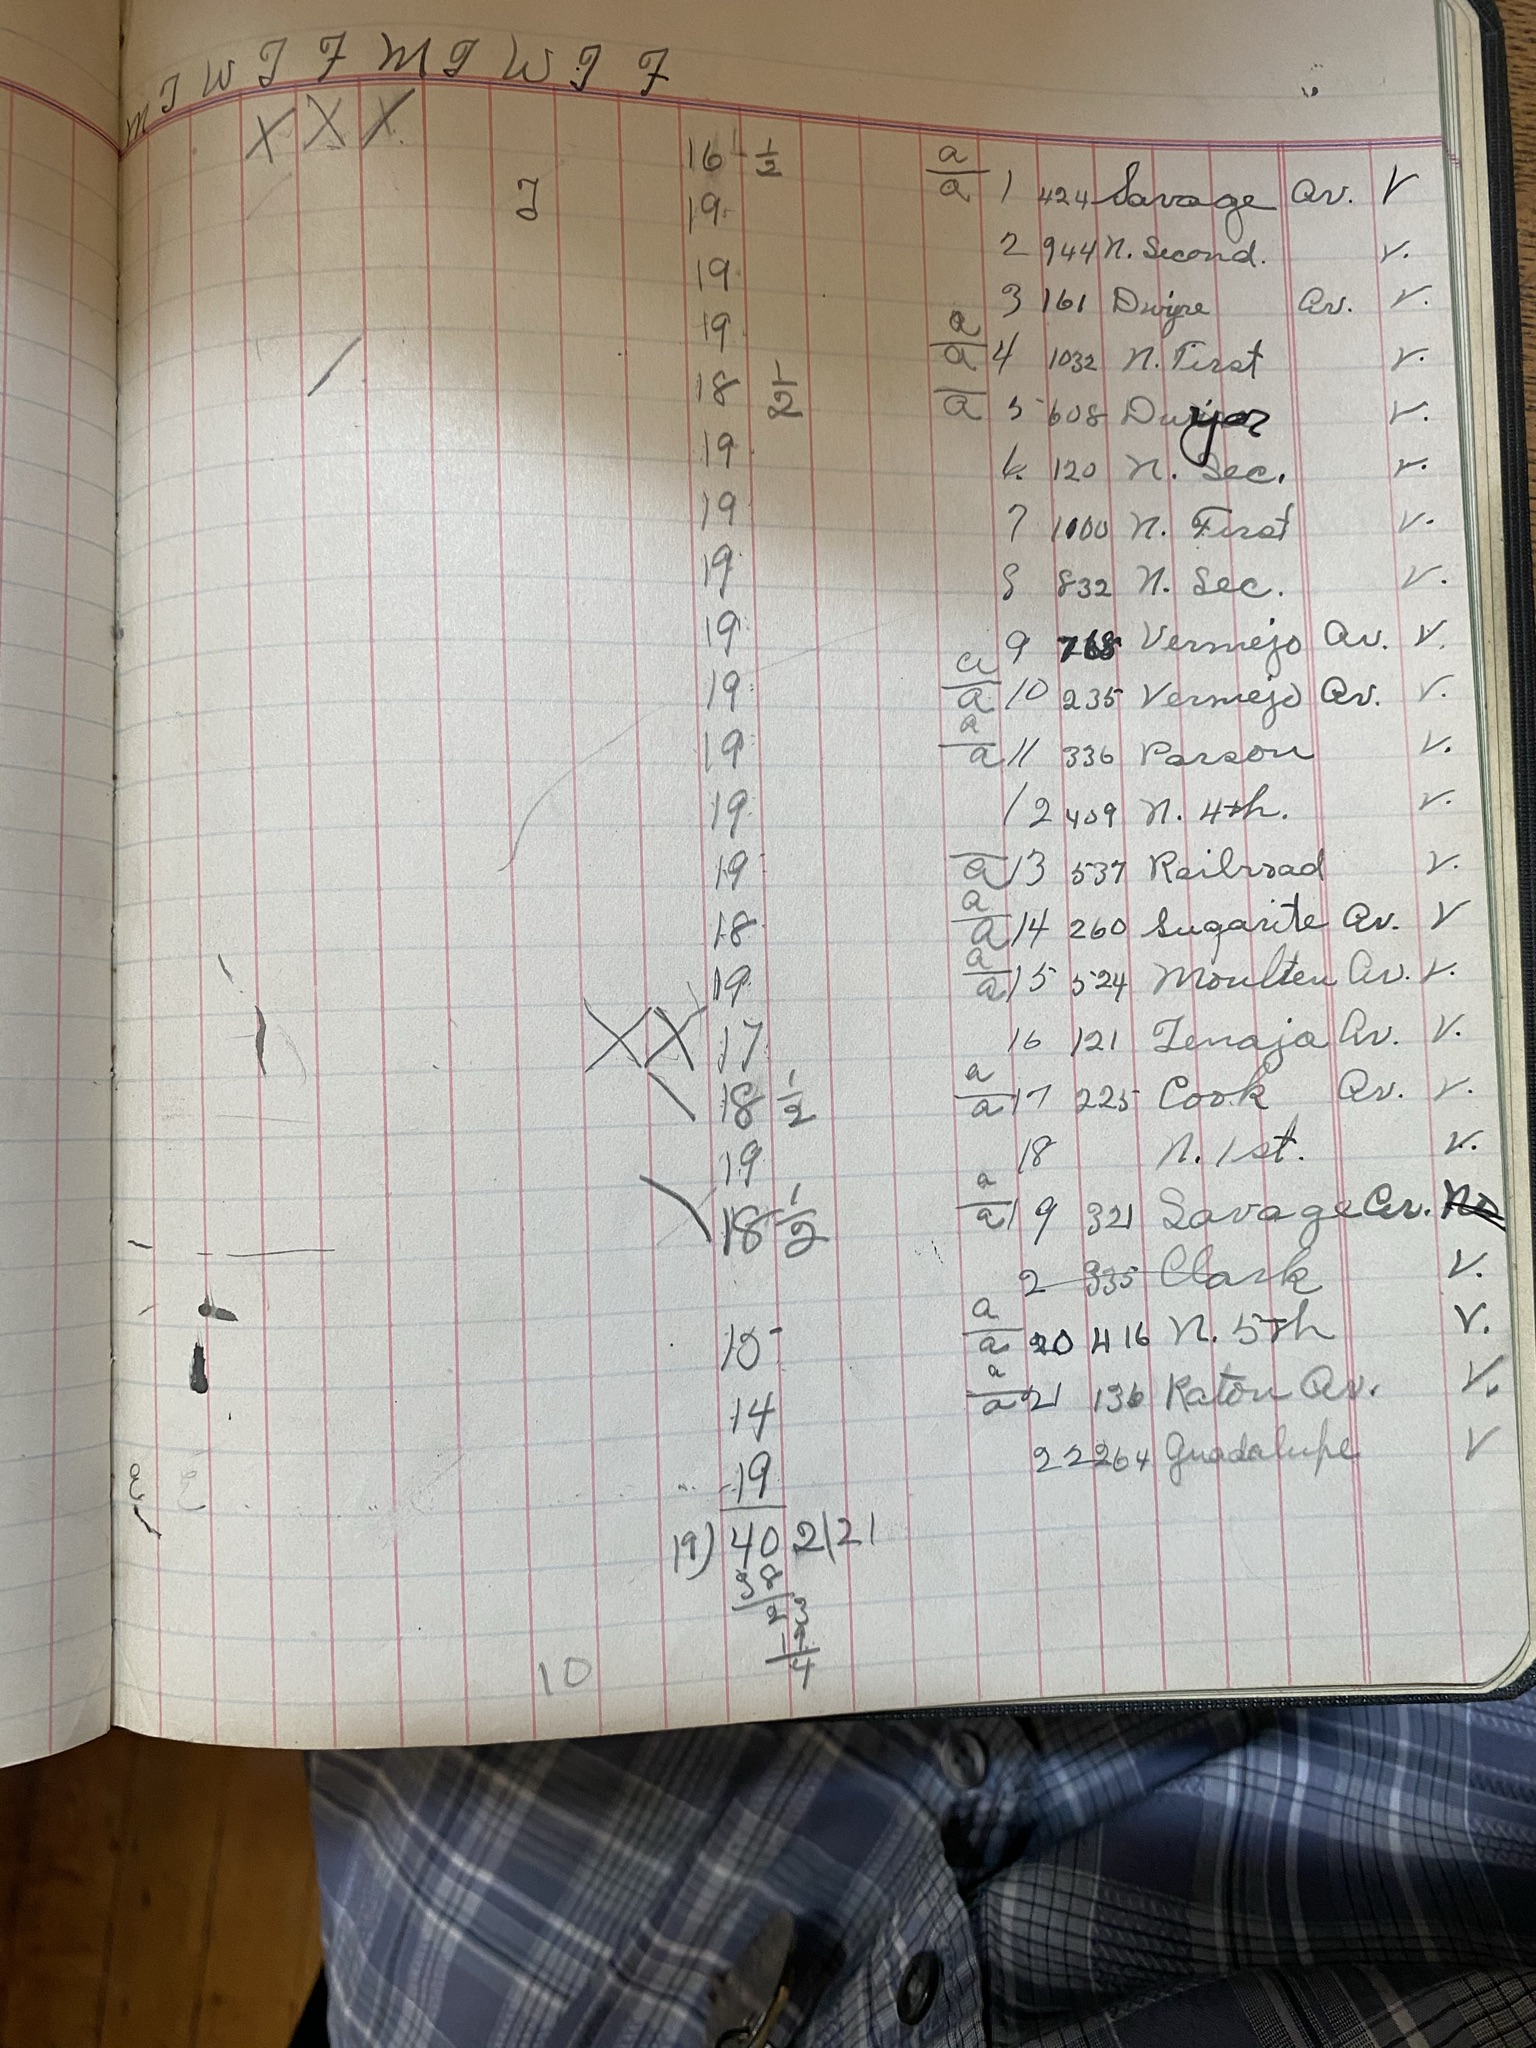 M T W T F M T W T F
X X X 16 1/2 a/a 1 424 Savage Av. V
T 19 2 944 N. Second. V.
19 3 161 Dwyre Av. V.
19 a/a 4 1032 N. First V.
18 1/2 a 5 608 V.
19 6. 120 N. Sec. V.
19 7 1000 N. First V.
19 8 832 N. Sec. V.
19 9 768 Vermejo Av. V.
19 a/a 10 235 Vermejo Av. V.
19 a/a 11 336 Parson V.
19 12 409 N. 4th. V.
19 a 13 537 Railroad V.
18 a/a 14 260 Sugarite Av. V
19 a/a 15 524 Moulten Av. V.
X X 17 16 121 Tenaja Av. V.
18 1/2 a/a 17 225 Cook Av. V.
19 18 N. 1st. V.
18 1/2 a/a 19 321 Savage Av. No
2 335 Clark V.
15 a/a 20 416 N. 5th V.
14 a/a 21 136 Raton Av. V.
19 22 264 Guadalupe V
19) 402 | 21
38
2
4
10